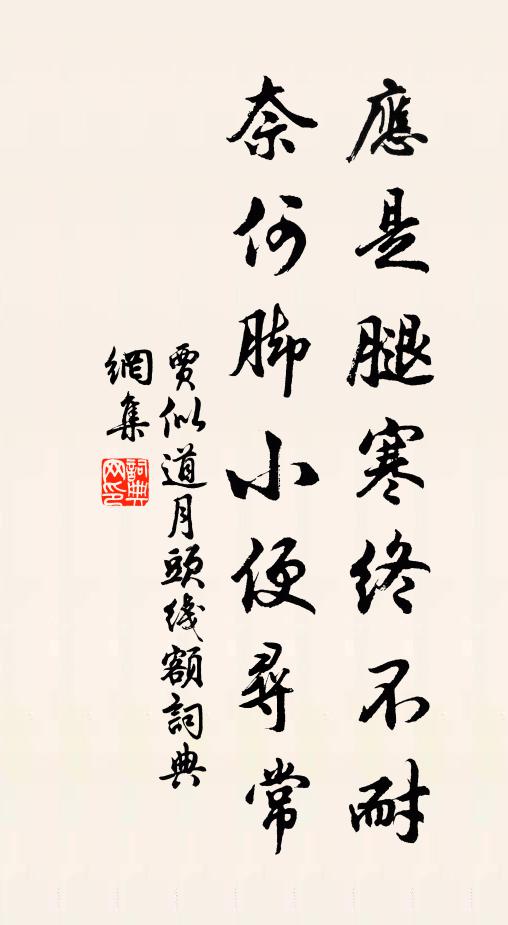 應是腿寒終不耐
奈何脚小便尋常
賈似道月頭綫額詞典
網集
詞典
网印